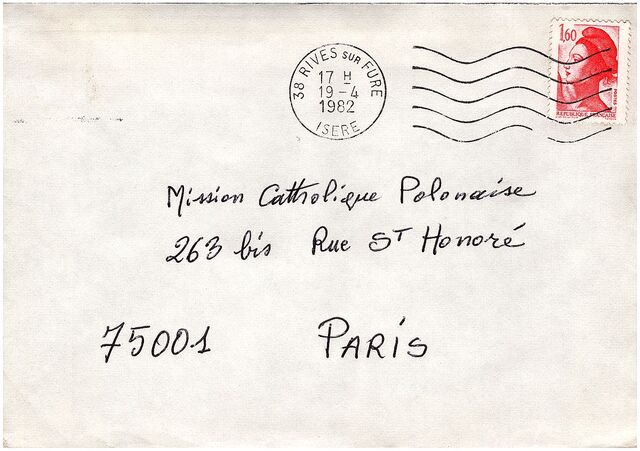 38 RIVES SUR FURE
17 H
19-4
1982
ISERE
1,60
REPUBLIQUE FRANCAISE
Mission Catholique Polonaise
263 bis Rue ST Honoré
75001 PARIS